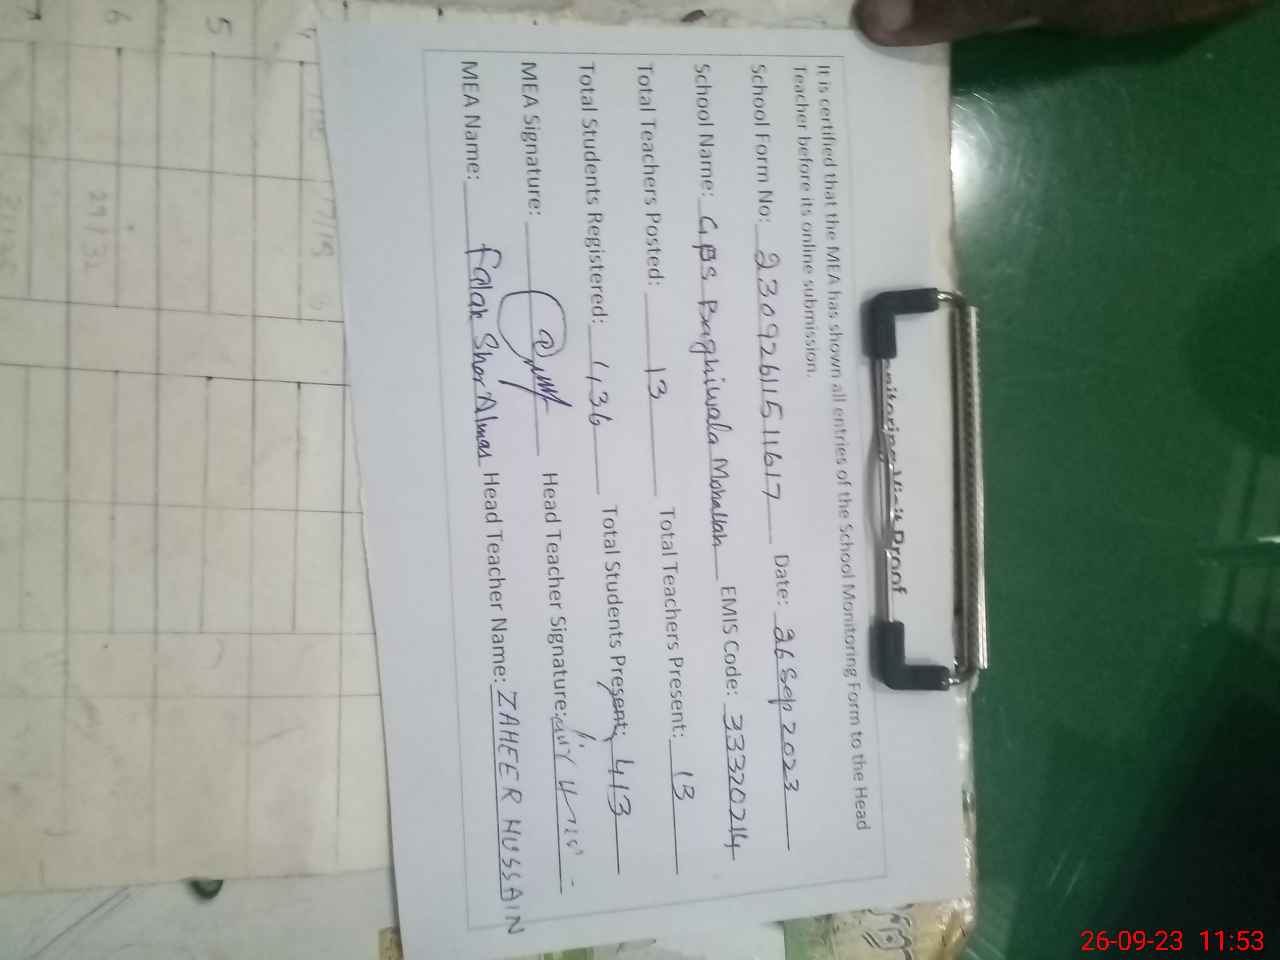 Monitoring Visit Proof
It is certified that the MEA has shown all entries of the School Monitoring Form to the Head
Teacher before its online submission.
School Form No: 23092611511617 Date: 26 Sep 2023
School Name: GPS Baghiwala Mohallah EMIS Code: 33320214
Total Teachers Posted: 13 Total Teachers Present: 13
Total Students Registered: 436 Total Students Present: 413
MEA Signature: Head Teacher Signature:
MEA Name: Falak Sher Almas Head Teacher Name: ZAHEER HUSSAIN
5
6
29/32
26-09-23 11:53